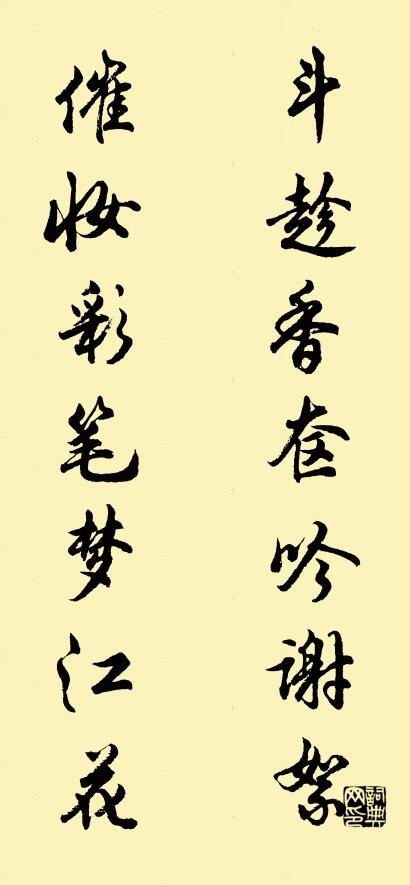 斗趁香奁吟谢絮
催妆彩笔梦江花
詞典
网印